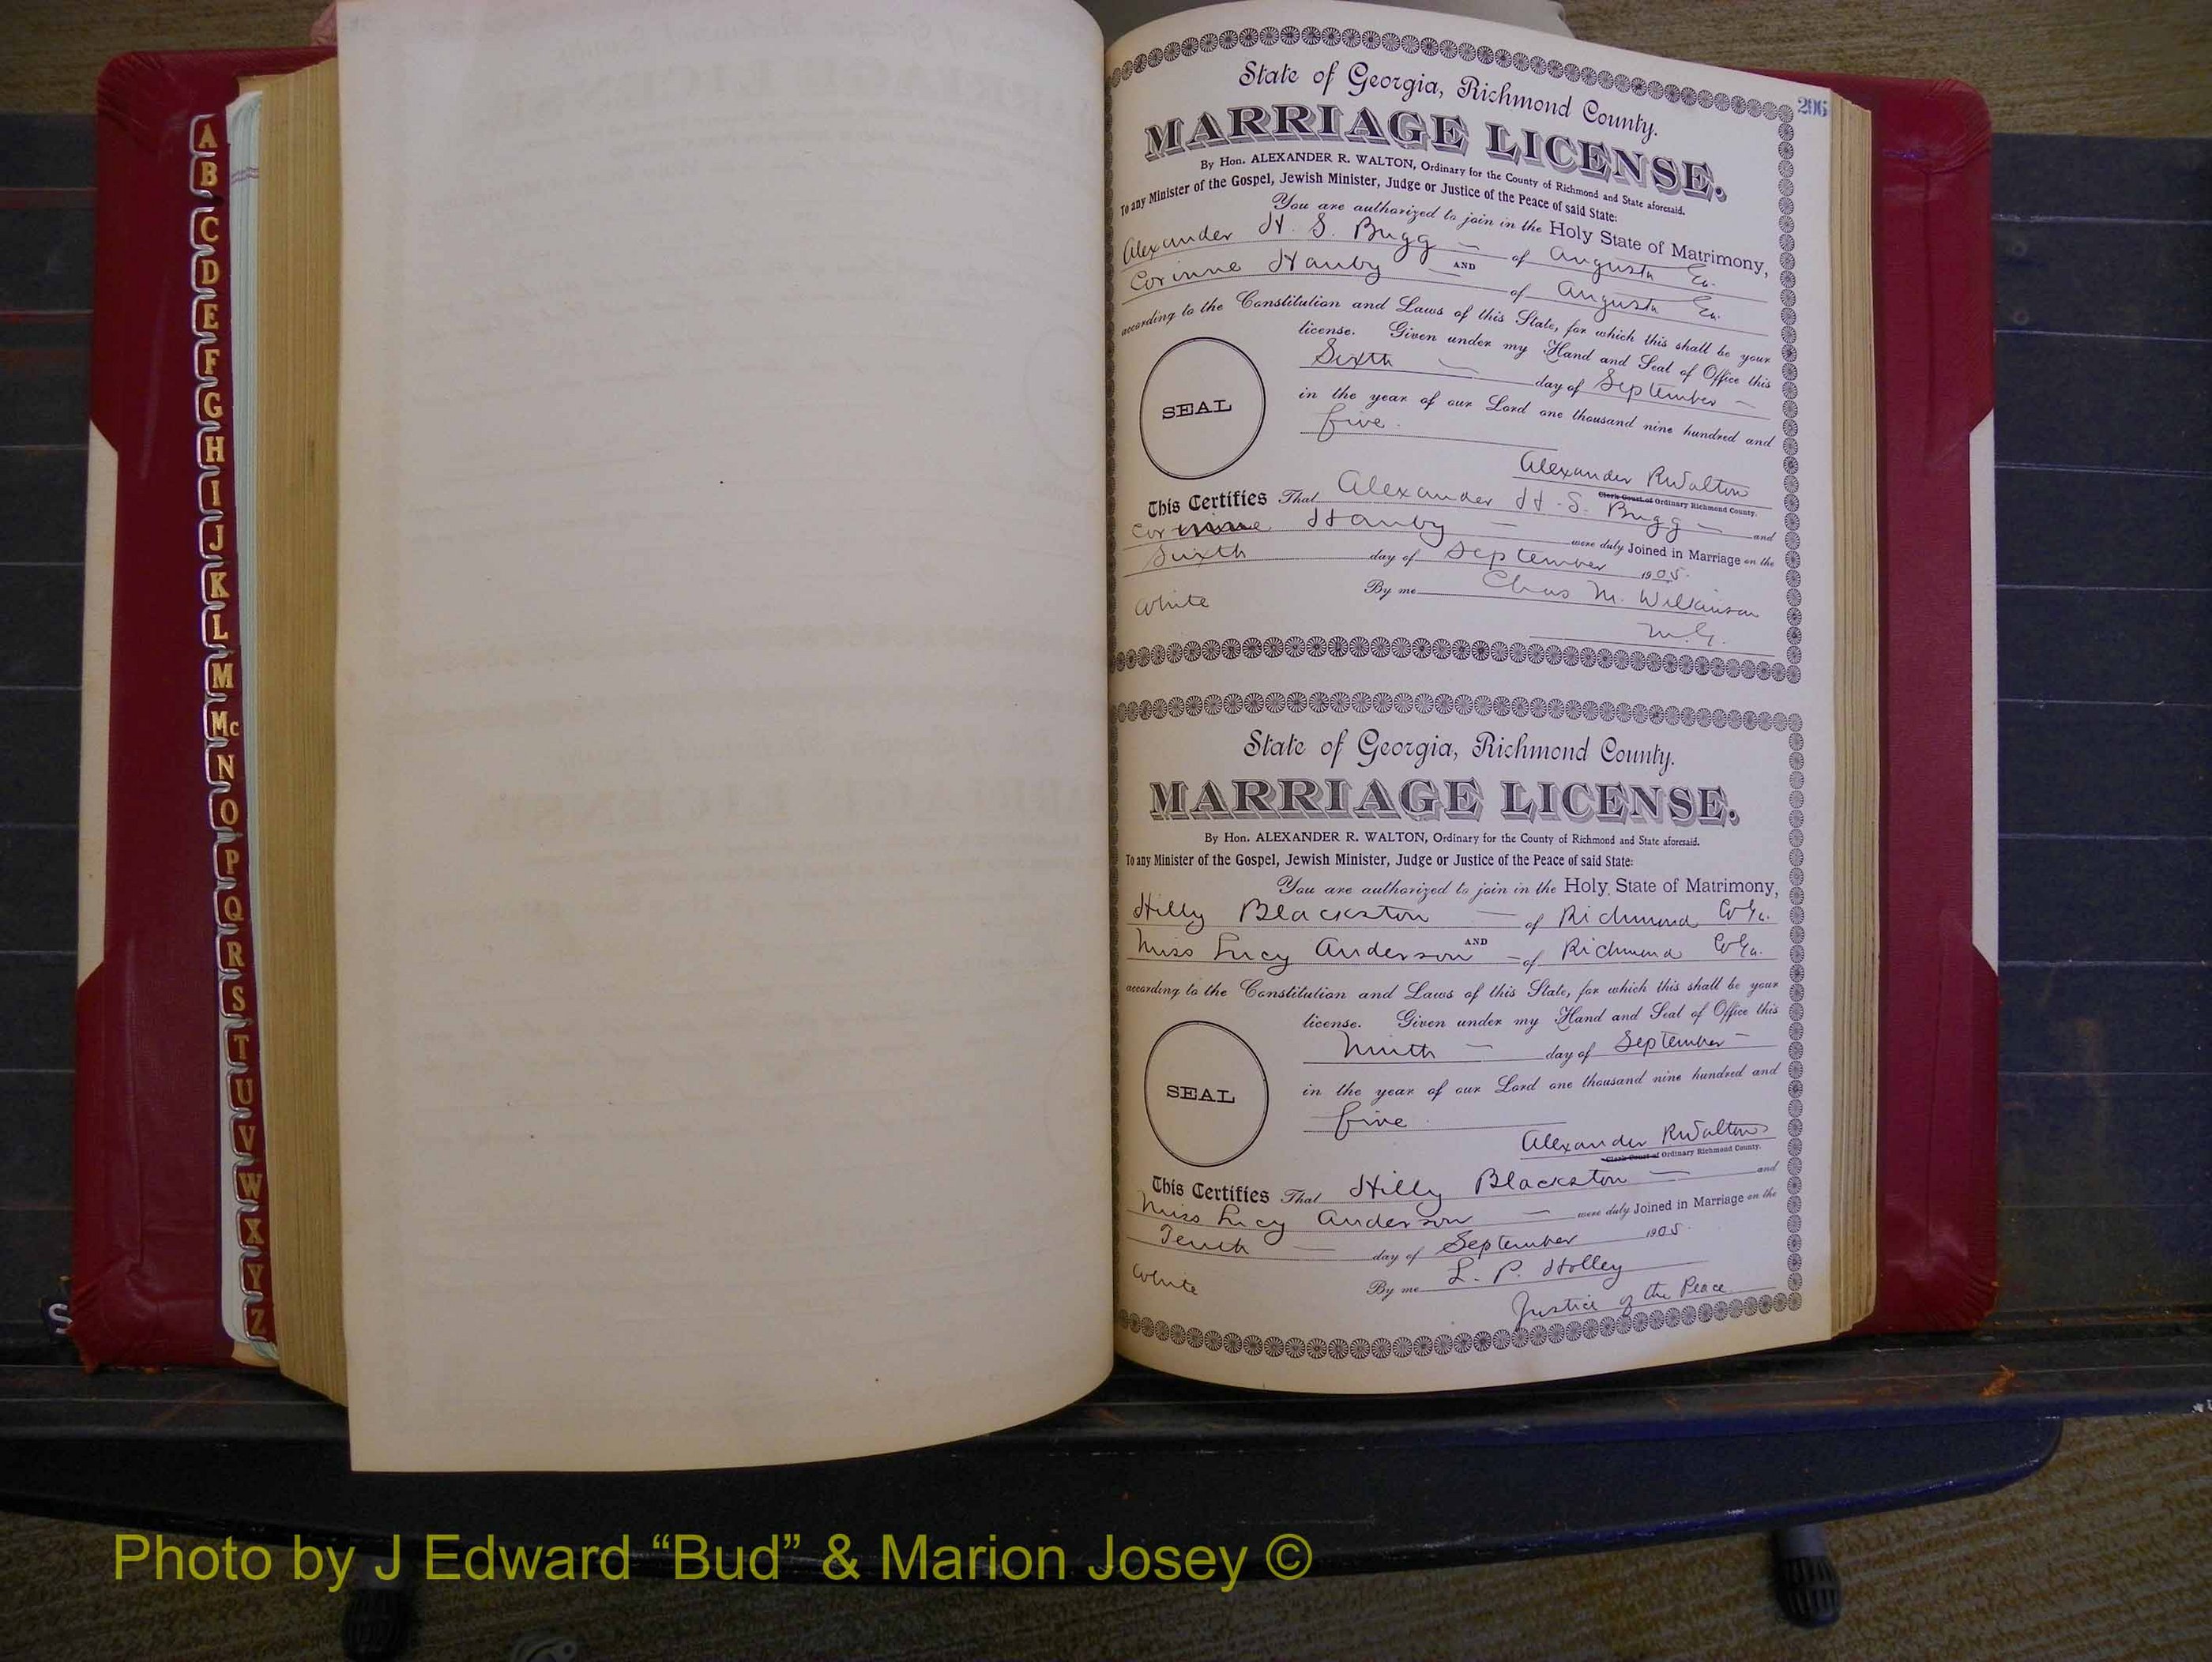 A
B
C
D
E
F
G
H
I
J
K
L
M
Mc
N
O
P
Q
R
S
T
U
V
W
X
Y
Z
S
296
State of Georgia, Richmond County.
MARRIAGE LICENSE.
By Hon. ALEXANDER R. WALTON, Ordinary for the County of Richmond and State aforesaid.
To any Minister of the Gospel, Jewish Minister, Judge or Justice of the Peace of said State:
You are authorized to join in the Holy State of Matrimony,
Alexander H. S. Bugg — of Augusta Ga.
AND
Corinne Hanby — of Augusta Ga.
according to the Constitution and Laws of this State, for which this shall be your
license. Given under my Hand and Seal of Office this
Sixth — day of September —
SEAL
in the year of our Lord one thousand nine hundred and
five.
Alexander R Walton
Clerk Court of Ordinary Richmond County.
This Certifies That Alexander H. S. Bugg — and
Corinne Hanby — were duly Joined in Marriage on the
Sixth day of September 1905.
White By me Chas M. Wilkinson
M.G.
State of Georgia, Richmond County.
MARRIAGE LICENSE.
By Hon. ALEXANDER R. WALTON, Ordinary for the County of Richmond and State aforesaid.
To any Minister of the Gospel, Jewish Minister, Judge or Justice of the Peace of said State:
You are authorized to join in the Holy State of Matrimony,
Hilly Blackston — of Richmond Co Ga.
AND
Miss Lucy Anderson — of Richmond Co Ga.
according to the Constitution and Laws of this State, for which this shall be your
license. Given under my Hand and Seal of Office this
Ninth — day of September —
SEAL
in the year of our Lord one thousand nine hundred and
five.
Alexander R Walton
Clerk Court of Ordinary Richmond County.
This Certifies That Hilly Blackston — and
Miss Lucy Anderson — were duly Joined in Marriage on the
Tenth — day of September 1905.
White By me L. P. Holley
Justice of the Peace
Photo by J Edward “Bud” & Marion Josey ©